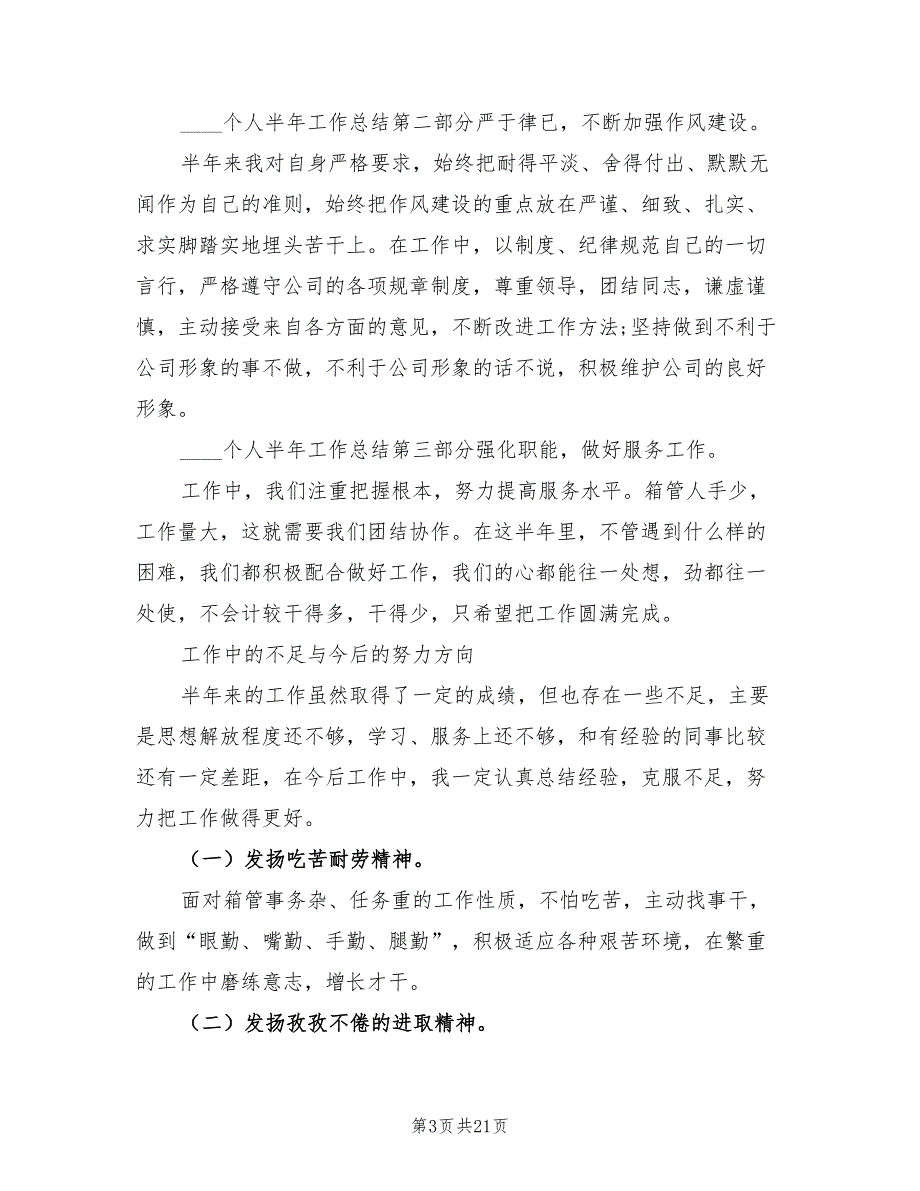 ____个人半年工作总结第二部分严于律已，不断加强作风建设。
半年来我对自身严格要求，始终把耐得平淡、舍得付出、默默无
闻作为自己的准则，始终把作风建设的重点放在严谨、细致、扎实、
求实脚踏实地埋头苦干上。在工作中，以制度、纪律规范自己的一切
言行，严格遵守公司的各项规章制度，尊重领导，团结同志，谦虚谨
慎，主动接受来自各方面的意见，不断改进工作方法;坚持做到不利于
公司形象的事不做，不利于公司形象的话不说，积极维护公司的良好
形象。
____个人半年工作总结第三部分强化职能，做好服务工作。
工作中，我们注重把握根本，努力提高服务水平。箱管人手少，
工作量大，这就需要我们团结协作。在这半年里，不管遇到什么样的
困难，我们都积极配合做好工作，我们的心都能往一处想，劲都往一
处使，不会计较干得多，干得少，只希望把工作圆满完成。
工作中的不足与今后的努力方向
半年来的工作虽然取得了一定的成绩，但也存在一些不足，主要
是思想解放程度还不够，学习、服务上还不够，和有经验的同事比较
还有一定差距，在今后工作中，我一定认真总结经验，克服不足，努
力把工作做得更好。
（一）发扬吃苦耐劳精神。
面对箱管事务杂、任务重的工作性质，不怕吃苦，主动找事干，
做到“眼勤、嘴勤、手勤、腿勤”，积极适应各种艰苦环境，在繁重
的工作中磨练意志，增长才干。
（二）发扬孜孜不倦的进取精神。
第3页共21页